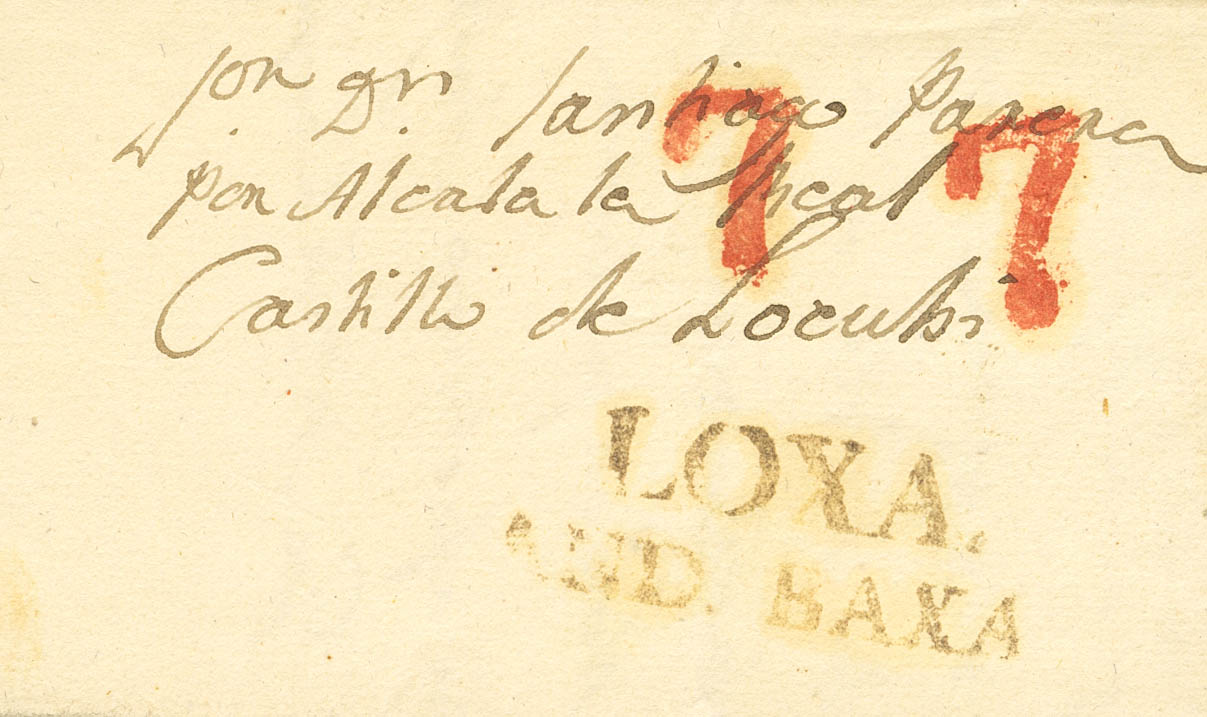 Sor. Dn. Santiago Parera
por Alcala la Real
Castillo de Locubi
7 7
LOXA.
AND. BAXA